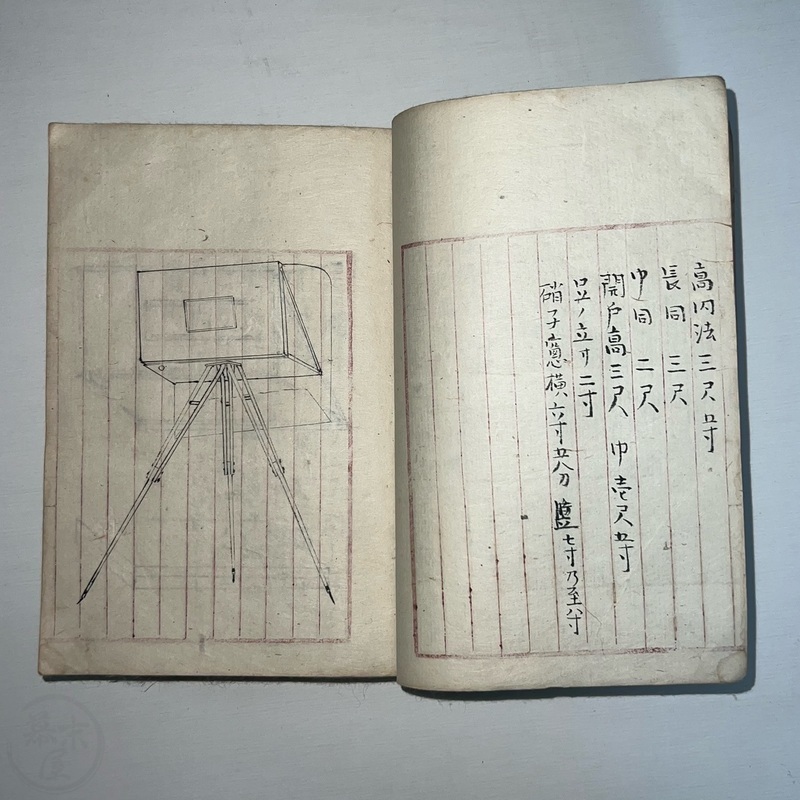 高内法三尺五寸
長同三尺
巾同二尺
開戸高三尺 巾壱尺五寸
ノ立寸二寸
硝子窓横六寸五分 竪七寸乃至八寸